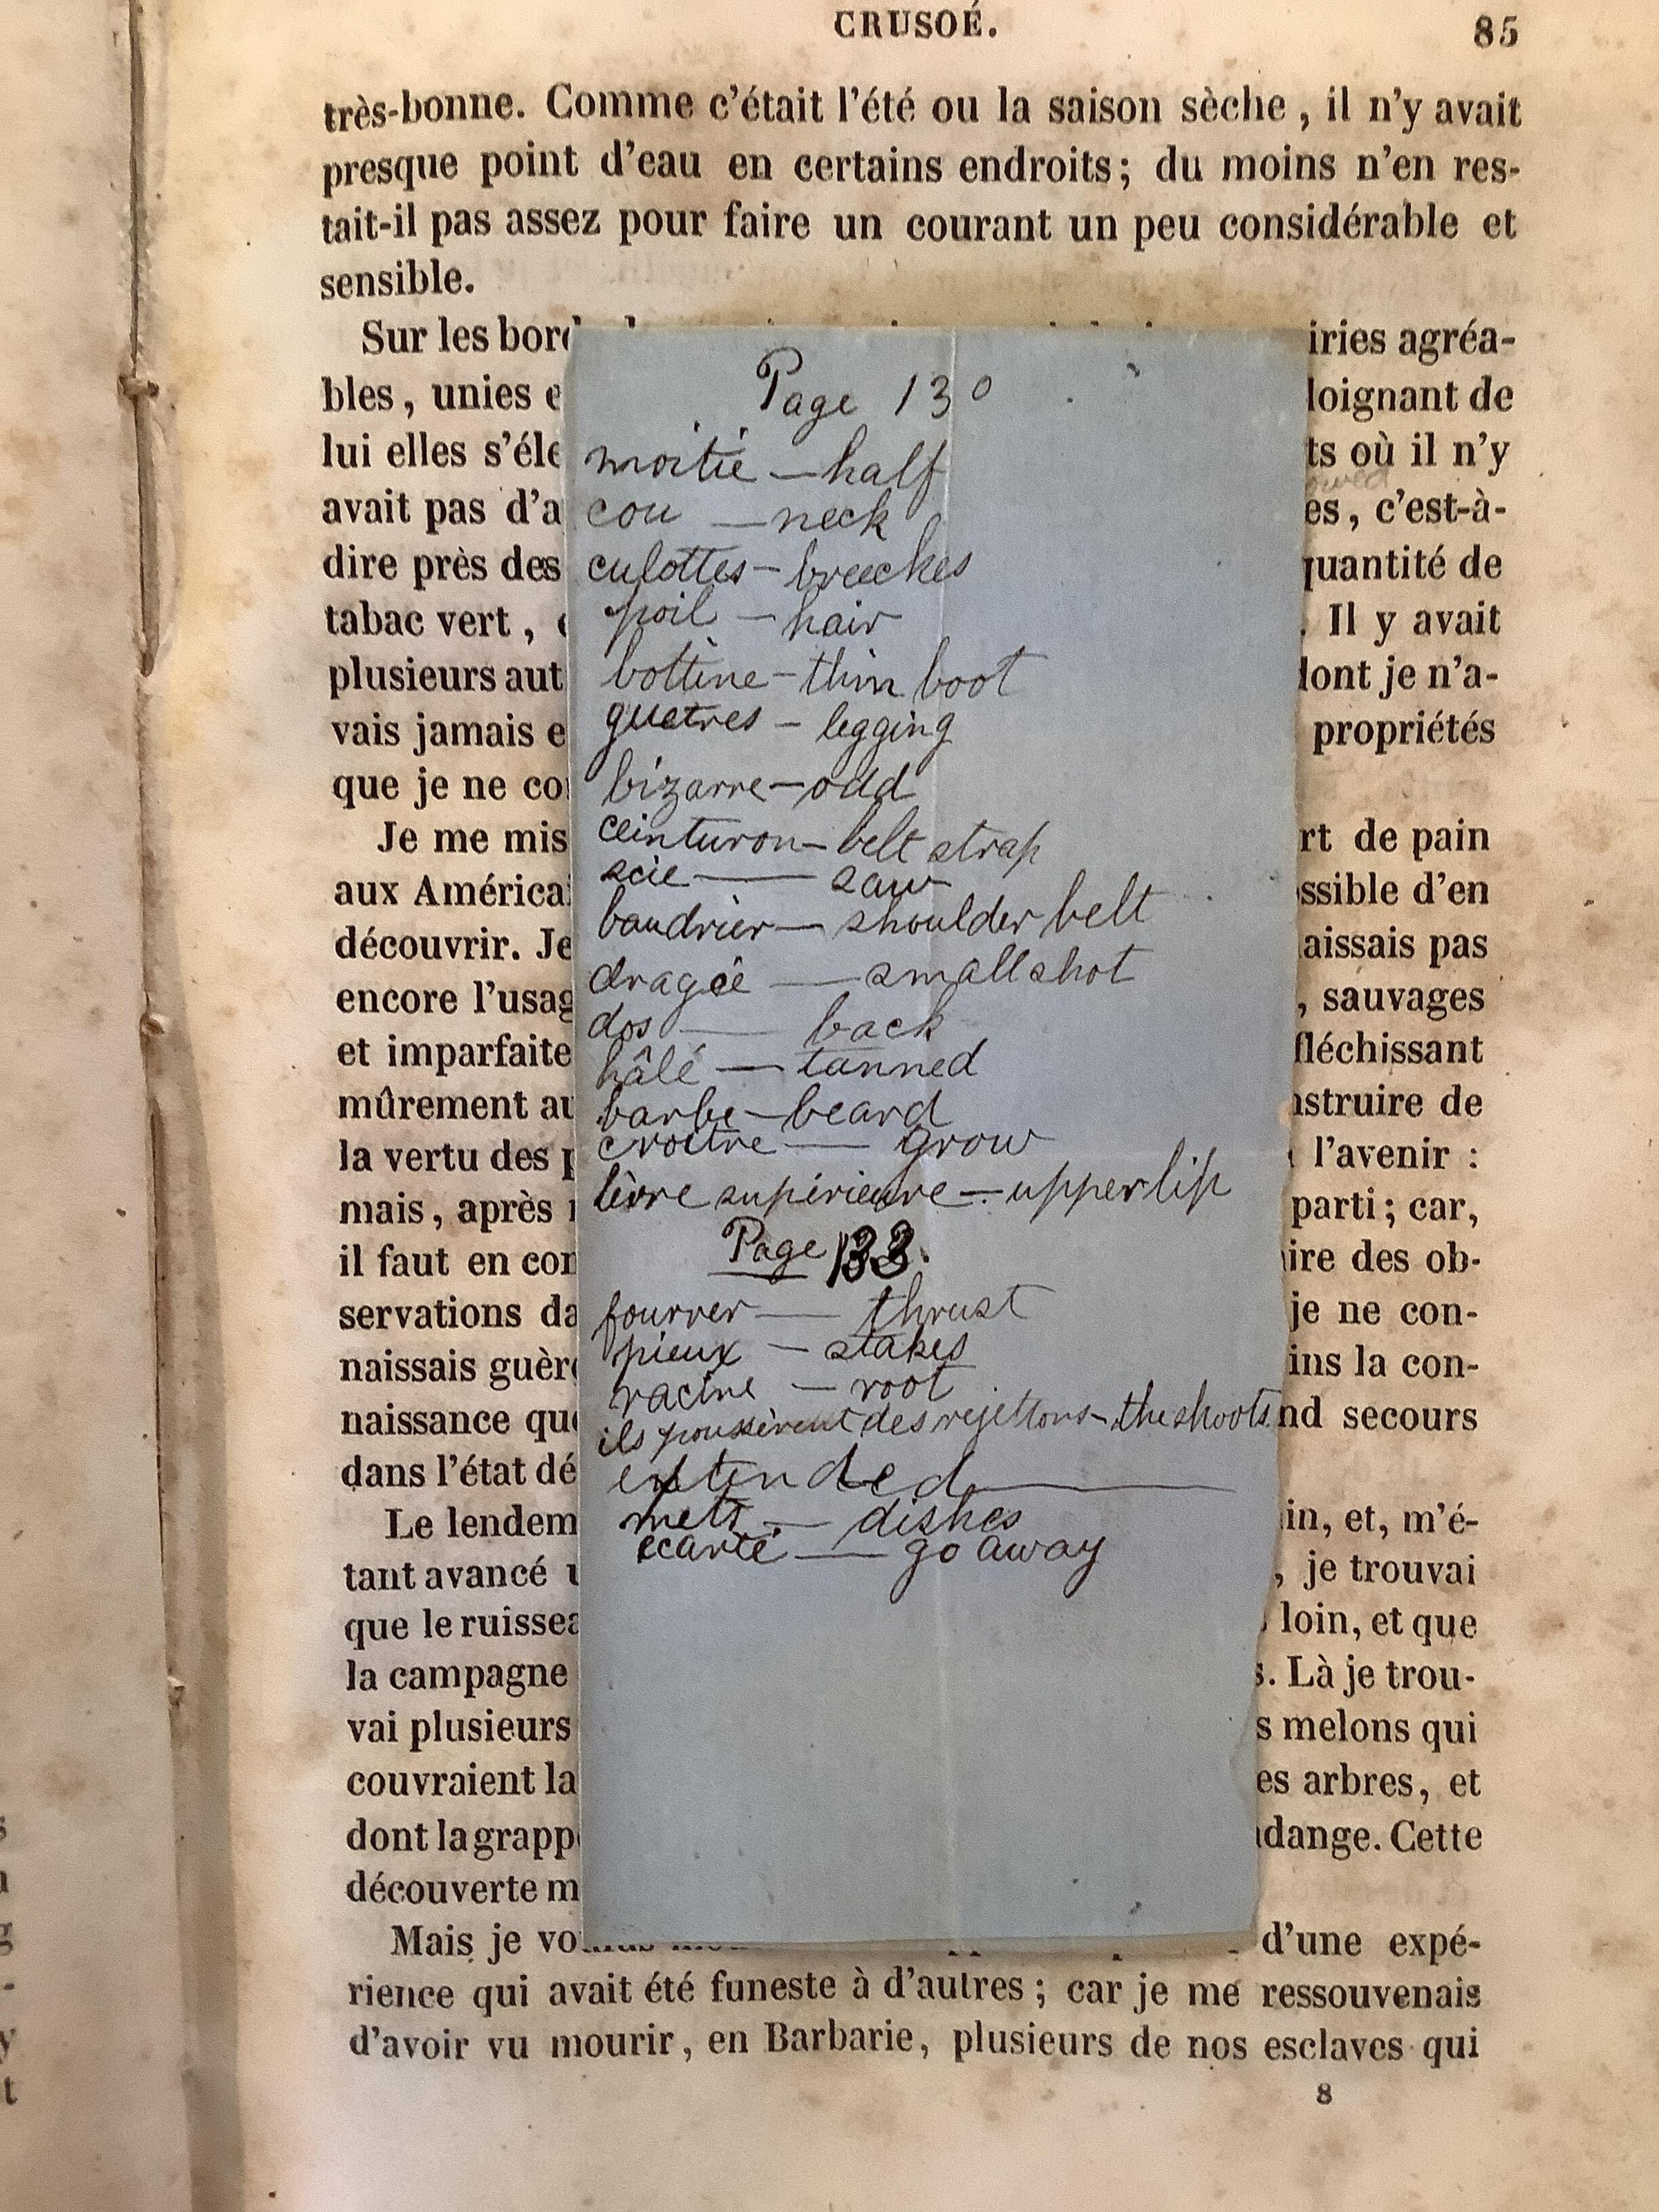 CRUSOÉ.
85
très-bonne. Comme c'était l'été ou la saison sèche, il n'y avait
presque point d'eau en certains endroits; du moins n'en res-
tait-il pas assez pour faire un courant un peu considérable et
sensible.
Sur les bord
iries agréa-
bles, unies e
loignant de
lui elles s'éle
ts où il n'y
avait pas d'a
es, c'est-à-
dire près des
quantité de
tabac vert,
. Il y avait
plusieurs aut
dont je n'a-
vais jamais e
propriétés
que je ne co
Je me mis
rt de pain
aux América
ssible d'en
découvrir. Je
aissais pas
encore l'usag
, sauvages
et imparfaite
fléchissant
mûrement au
nstruire de
la vertu des p
l'avenir :
mais, après
parti; car,
il faut en con
ire des ob-
servations da
je ne con-
naissais guèr
ins la con-
naissance que
nd secours
dans l'état dé
Le lendem
in, et, m'é-
tant avancé
, je trouvai
que le ruissea
loin, et que
la campagne
s. Là je trou-
vai plusieurs
s melons qui
couvraient la
es arbres, et
dont la grapp
dange. Cette
découverte m
Mais je vo
d'une expé-
rience qui avait été funeste à d'autres; car je me ressouvenais
d'avoir vu mourir, en Barbarie, plusieurs de nos esclaves qui
8
Page 130
moitié — half
cou — neck
culottes — breeches
poil — hair
bottine — thin boot
guetres — legging
bizarre — odd
ceinturon — belt strap
scie — saw
baudrier — shoulder belt
dragée — small shot
dos — back
hâlé — tanned
barbe — beard
croitre — grow
lèvre supérieure — upper lip
Page 133.
fourrer — thrust
pieux — stakes
racine — root
ils poussèrent des rejettons — the shoots
extended
mets — dishes
écarté — go away